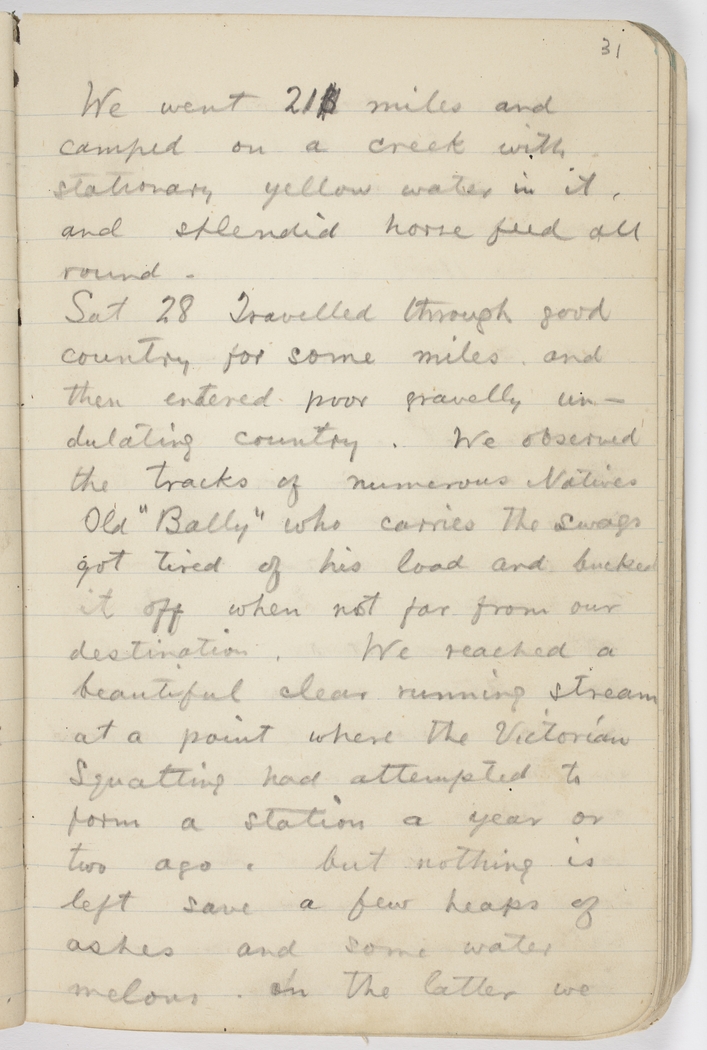 31
We went 21 miles and
camped on a creek with
stationary yellow water in it,
and splendid horse feed all
round -
Sat 28 Travelled through good
country for some miles and
then entered poor gravelly un-
dulating country. We observed
the tracks of numerous Natives
Old "Bally" who carries the swags
got tired of his load and bucked
it off when not far from our
destination. We reached a
beautiful clear running stream
at a point where the Victorian
Squatting had attempted to
form a station a year or
two ago. but nothing is
left save a few heaps of
ashes and some water
melons. In the latter we